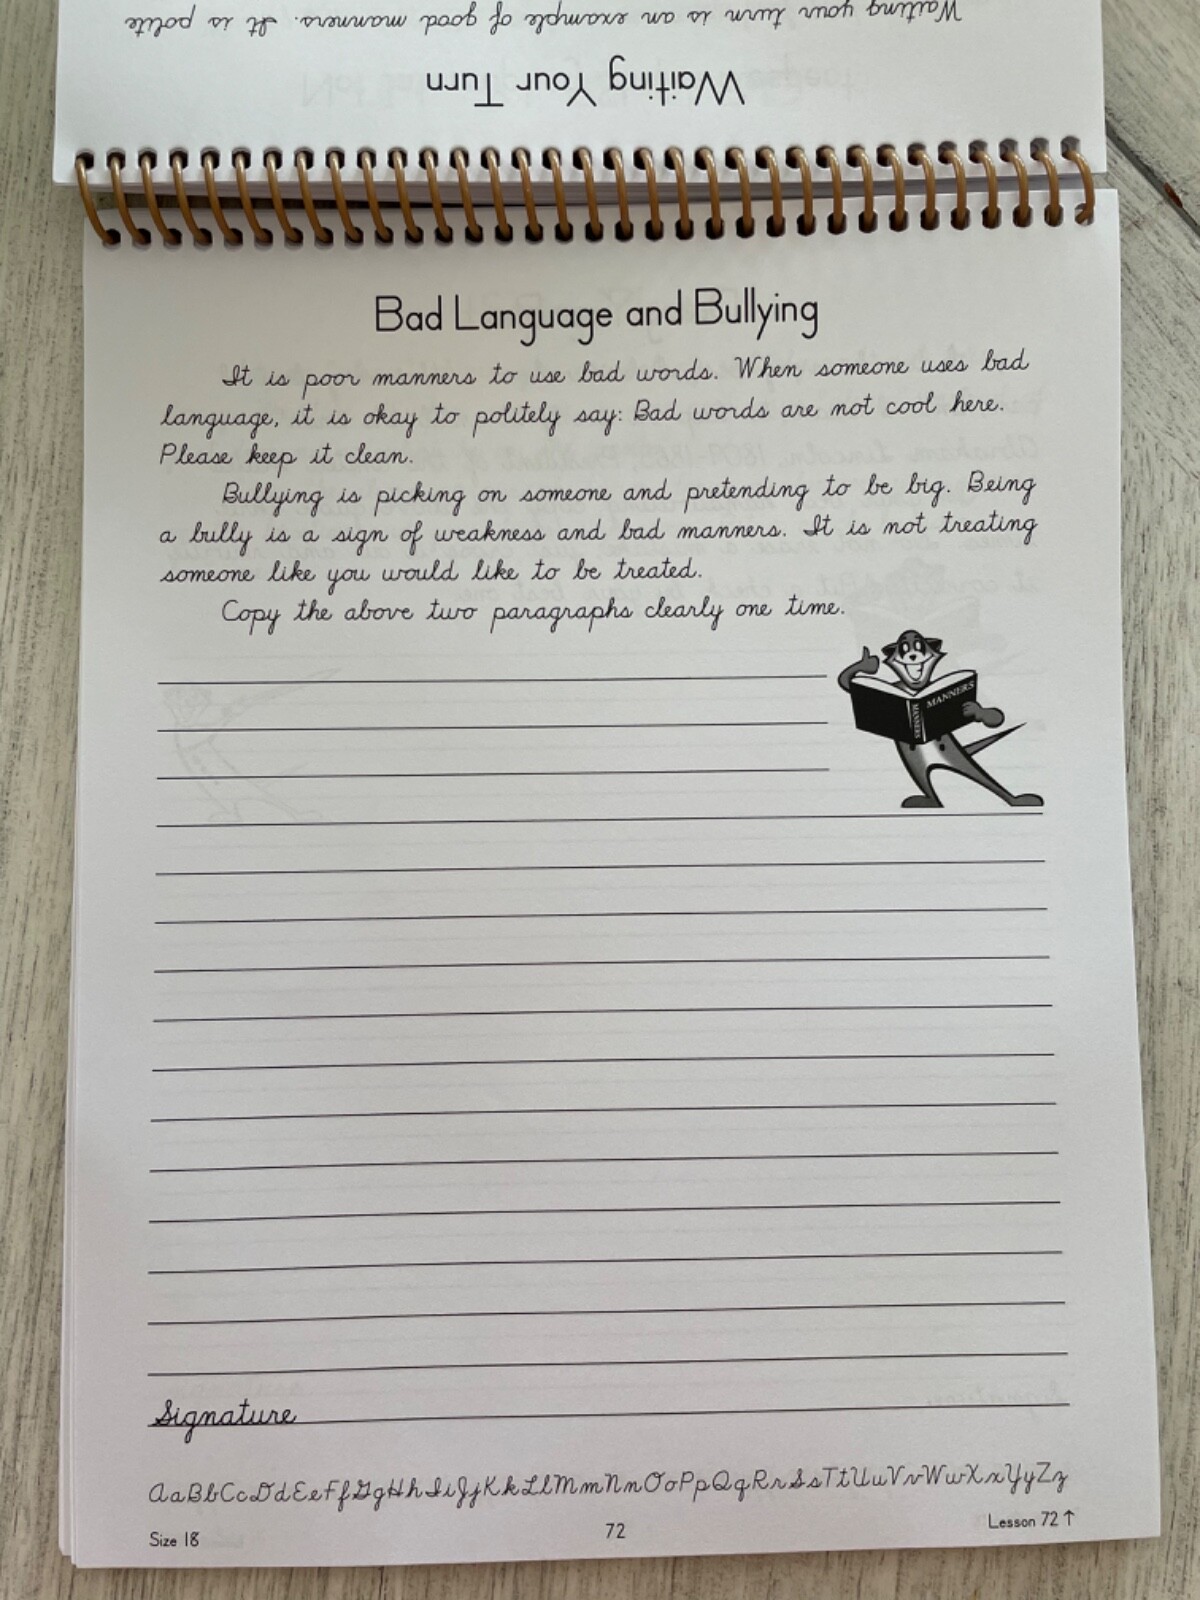 Waiting your turn is an example of good manners. It is polite
Waiting Your Turn
Bad Language and Bullying
It is poor manners to use bad words. When someone uses bad
language, it is okay to politely say: Bad words are not cool here.
Please keep it clean.
Bullying is picking on someone and pretending to be big. Being
a bully is a sign of weakness and bad manners. It is not treating
someone like you would like to be treated.
Copy the above two paragraphs clearly one time.
MANNERS
MANNERS
Signature
AaBbCcDdEeFfGgHhIiJjKkLlMmNnOoPpQqRrSsTtUuVvWwXxYyZz
Size 18
72
Lesson 72↑